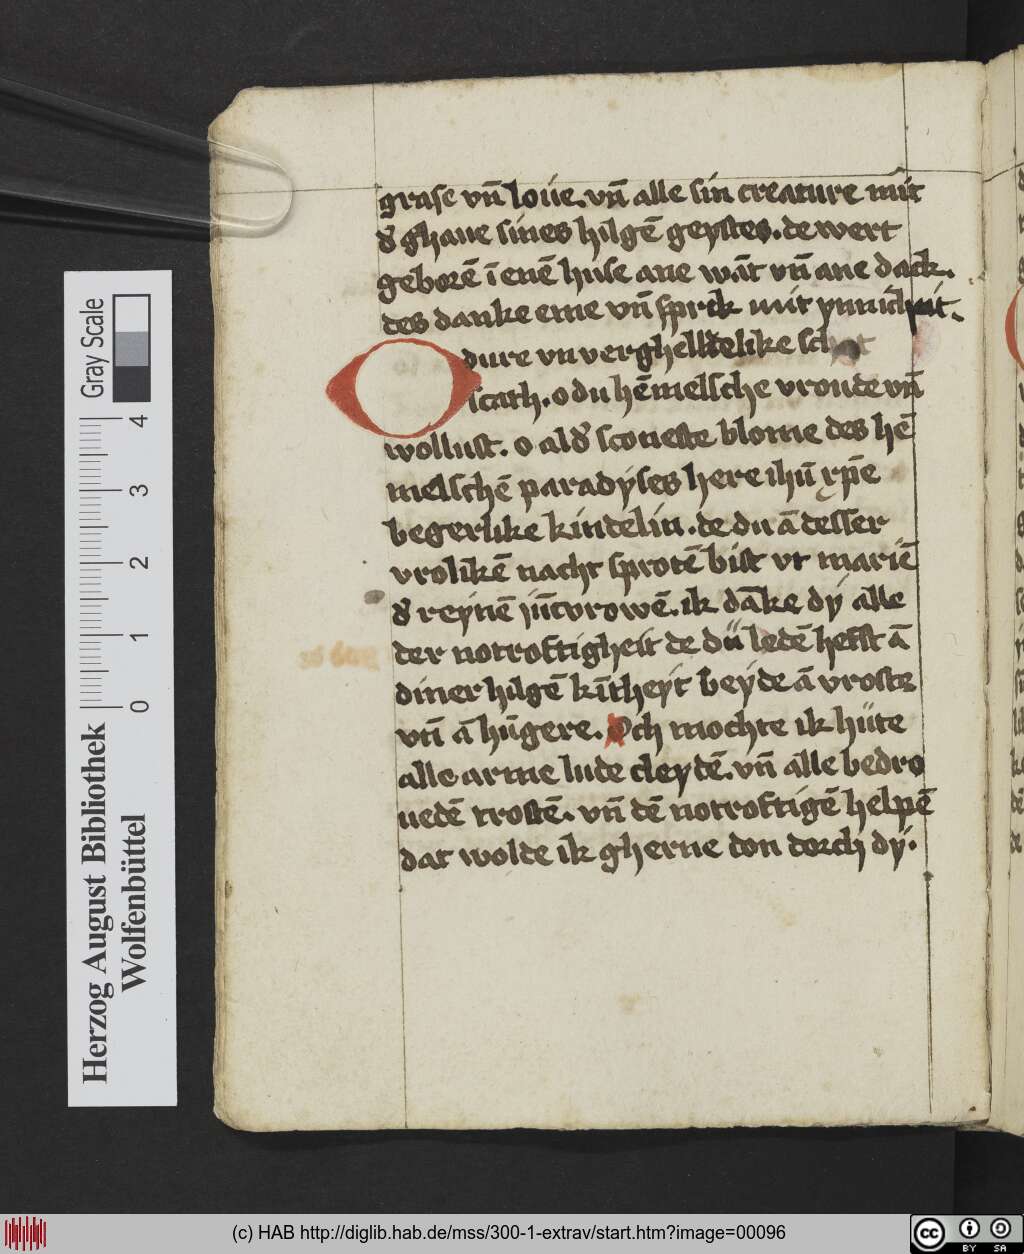 grase vn̄ loue. vn̄ alle sin creature mit
d᷑ ghaue sines hilgē geystes. de wert
geborē ī enē huse ane wāt vn̄ ane dack.
des danke eme vn̄ sprik mit ynnicheit.
O dure vn verghelldelike
scath. o du hēmelsche vroude vn̄
wollust. o ald᷑ sconeste blome des hē
melschē paradyses here ihū xp̄e
begerlike kindelin. de du ā desser
vrolikē nacht sprotē bist vt mariē
d᷑ reynē jūcvrowē. ik dāke dy alle
der notroftigheit de du ledē hefst ā
diner hilgē kītheyt beyde ā vroste
vn̄ ā hūgere. Och mochte ik hüte
alle arme lude cleydē. vn̄ alle bedro
uedē trostē. vn̄ dē notroftigē helpē
dat wolde ik gherne don dorch dy.
Herzog August Bibliothek
Wolfenbüttel
Gray Scale
0 1 2 3 4
(c) HAB http://diglib.hab.de/mss/300-1-extrav/start.htm?image=00096
cc BY SA